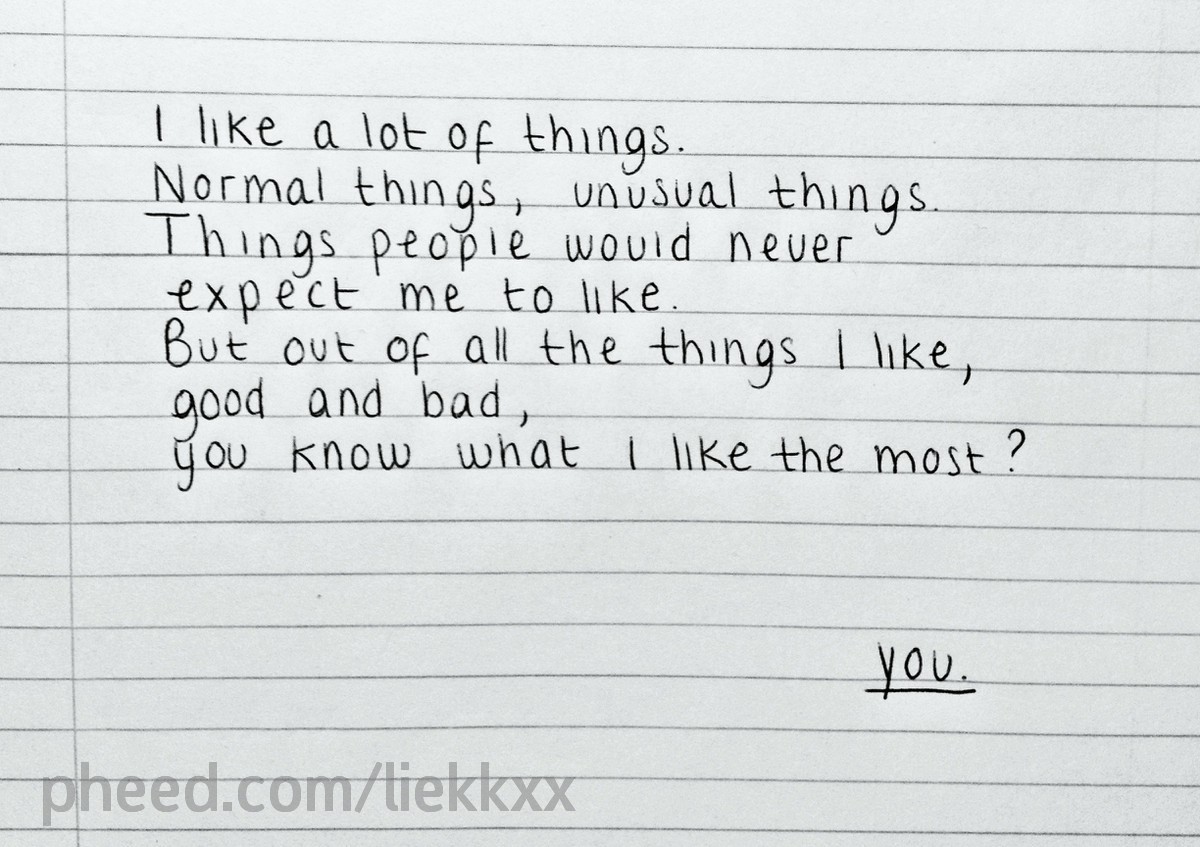 I like a lot of things.
Normal things, unusual things.
Things people would never
expect me to like.
But out of all the things I like,
good and bad,
you know what I like the most?
you.
pheed.com/liekkxx